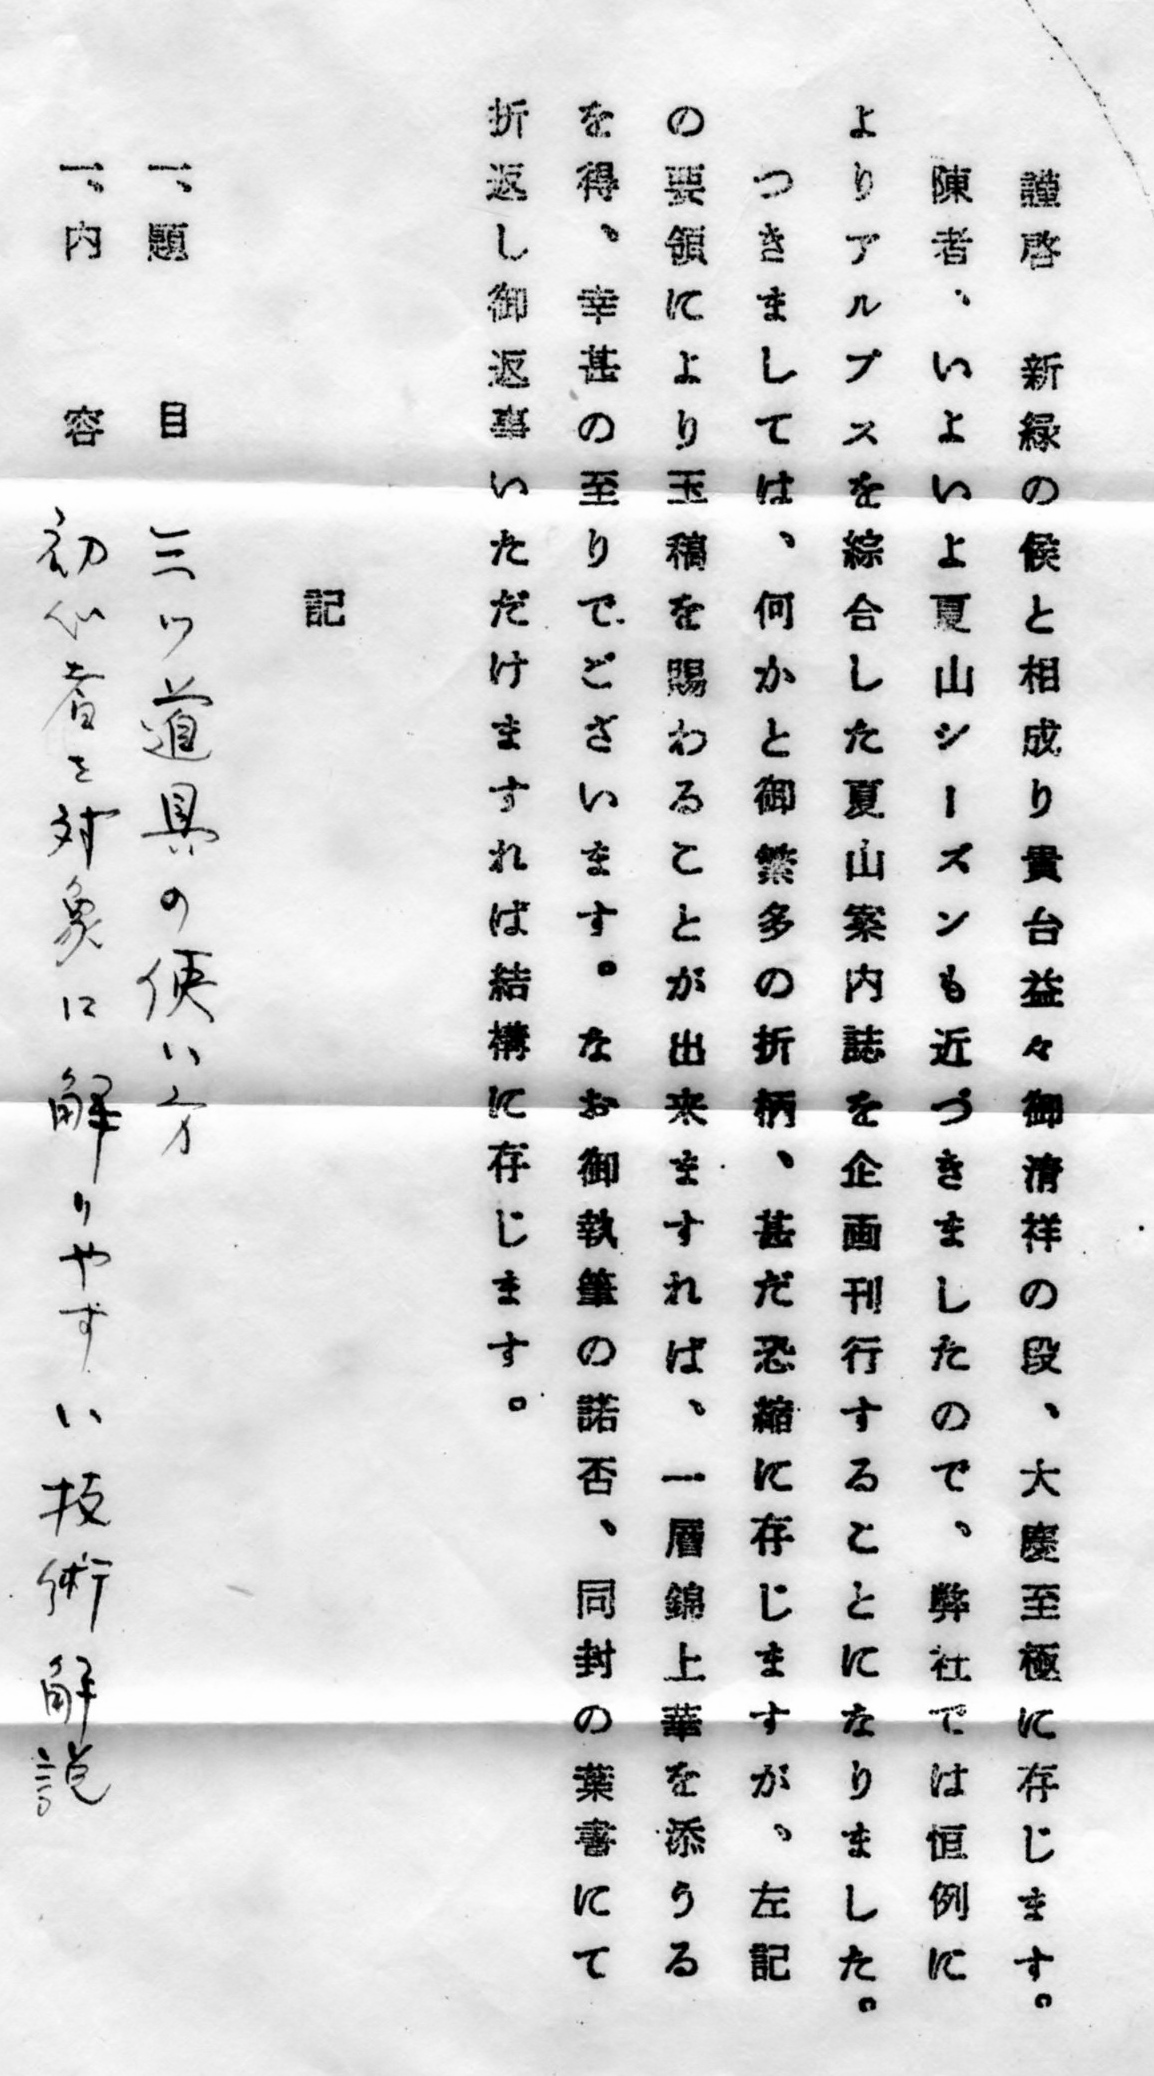 謹啓　新緑の候と相成り貴台益々御清祥の段、大慶至極に存じます。
陳者、いよいよ夏山シーズンも近づきましたので、弊社では恒例に
よりアルプスを綜合した夏山案内誌を企画刊行することになりました。
つきましては、何かと御繁多の折柄、甚だ恐縮に存じますが、左記
の要領により玉稿を賜わることが出来ますれば、一層錦上華を添うる
を得、幸甚の至りでございます。なお御執筆の諾否、同封の葉書にて
折返し御返事いただけますれば結構に存じます。
記
一、題　目　三ツ道具の使い方
一、内　容　初心者を対象に解りやすい技術解説